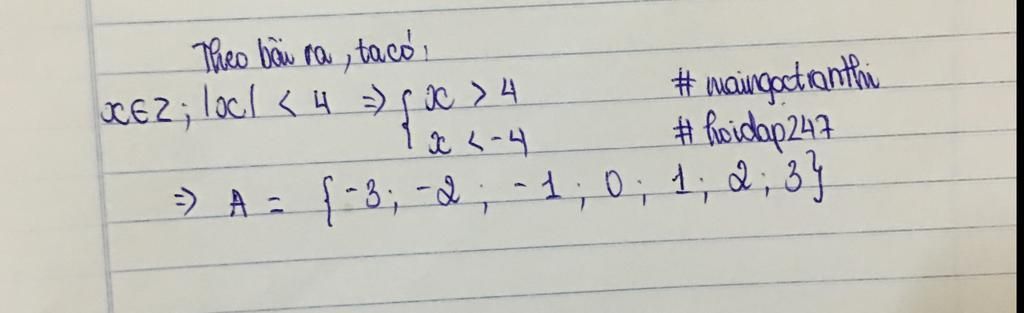 Theo bài ra, ta có,
x∈Z; |x| < 4 ⇒ { x > 4 #maingoctranthi
x < -4 #hoidap247
⇒ A = {-3; -2; -1; 0; 1; 2; 3}